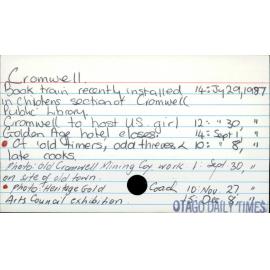 Cromwell.
Book train recently installed 14: Jy 29, 1987
in Childrens section of Cromwell
Public Library.
Cromwell to host US girl 12: " 30, "
Golden Age hotel closes: 14: Sept 1, "
• Of 'old timers, odd thieves & 10: " 8, "
late cooks.
Photo: Old Cromwell Mining Coy work 1: Sept 30, "
on site of old town.
• Photo: Heritage Gold Coach 10: Nov. 27 "
Arts Council exhibition. 15: Dec 8, "
OTAGO DAILY TIMES